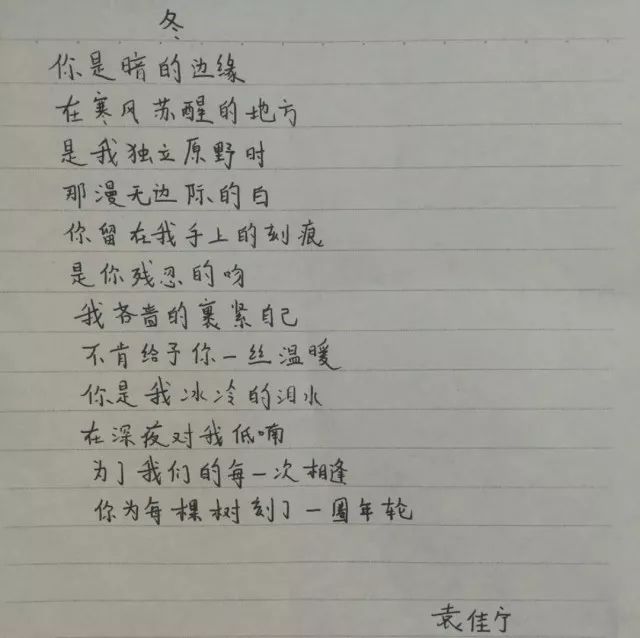 冬
你是暗的边缘
在寒风苏醒的地方
是我独立原野时
那漫无边际的白
你留在我手上的刻痕
是你残忍的吻
我吝啬的裹紧自己
不肯给予你一丝温暖
你是我冰冷的泪水
在深夜对我低喃
为了我们的每一次相逢
你为每棵树刻了一圈年轮
袁佳宁